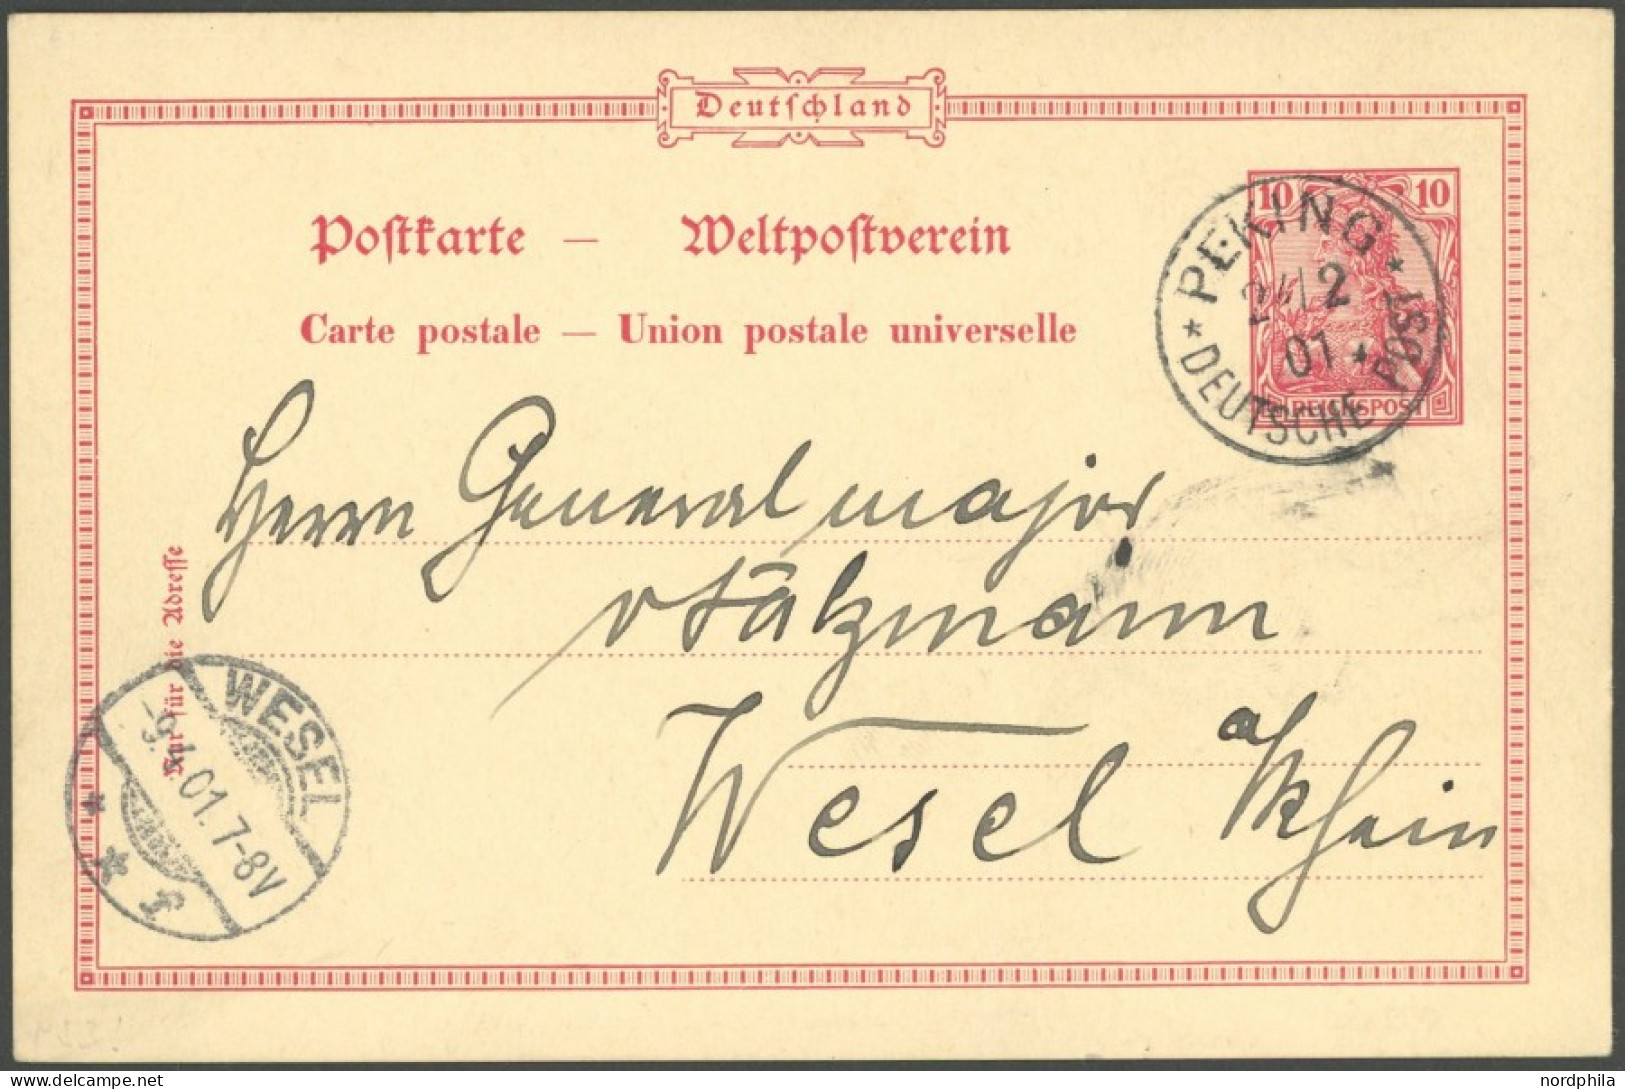 Deutschland
10 10
Postkarte — Weltpostverein
Carte postale — Union postale universelle
REICHSPOST
PEKING
2
01
DEUTSCHE POST
Herrn Generalmajor
v Sälzmann
Wesel a/Rhein
Nur für die Adresse
WESEL
-9.4.01.7-8V
f
nordphila